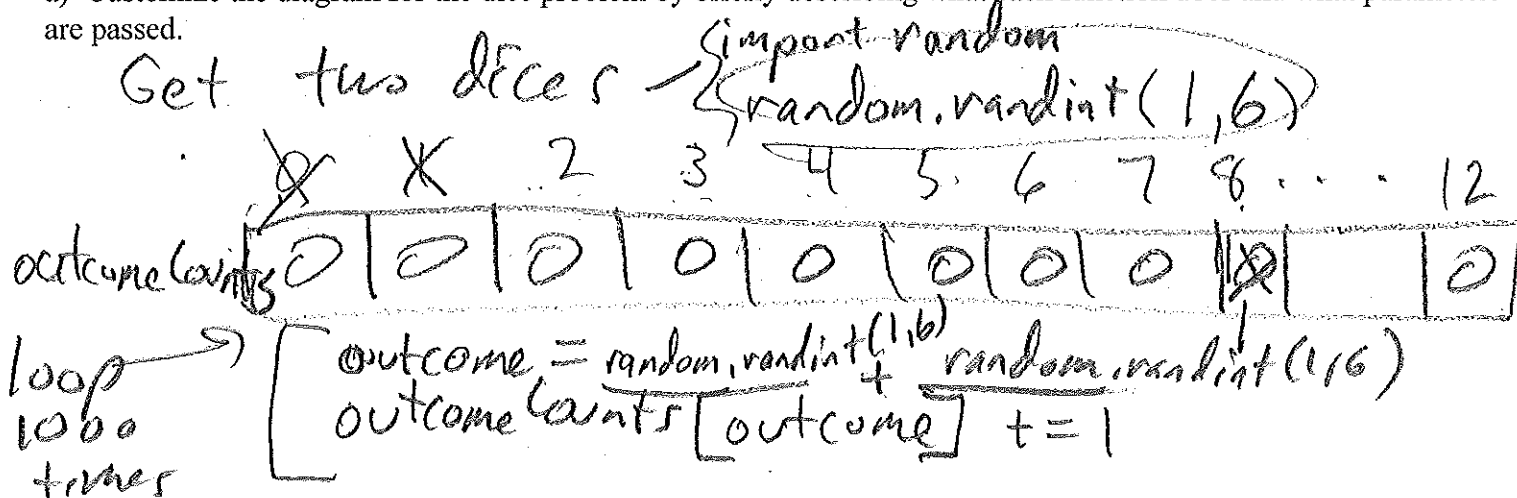 are passed.
Get two dices - { import random
random.randint(1,6)
0 1 2 3 4 5 6 7 8 . . . 12
outcomeCounts 0 0 0 0 0 0 0 0 0 0
1
loop 1000 times
outcome = random.randint(1,6) + random.randint(1,6)
outcomeCounts[outcome] += 1